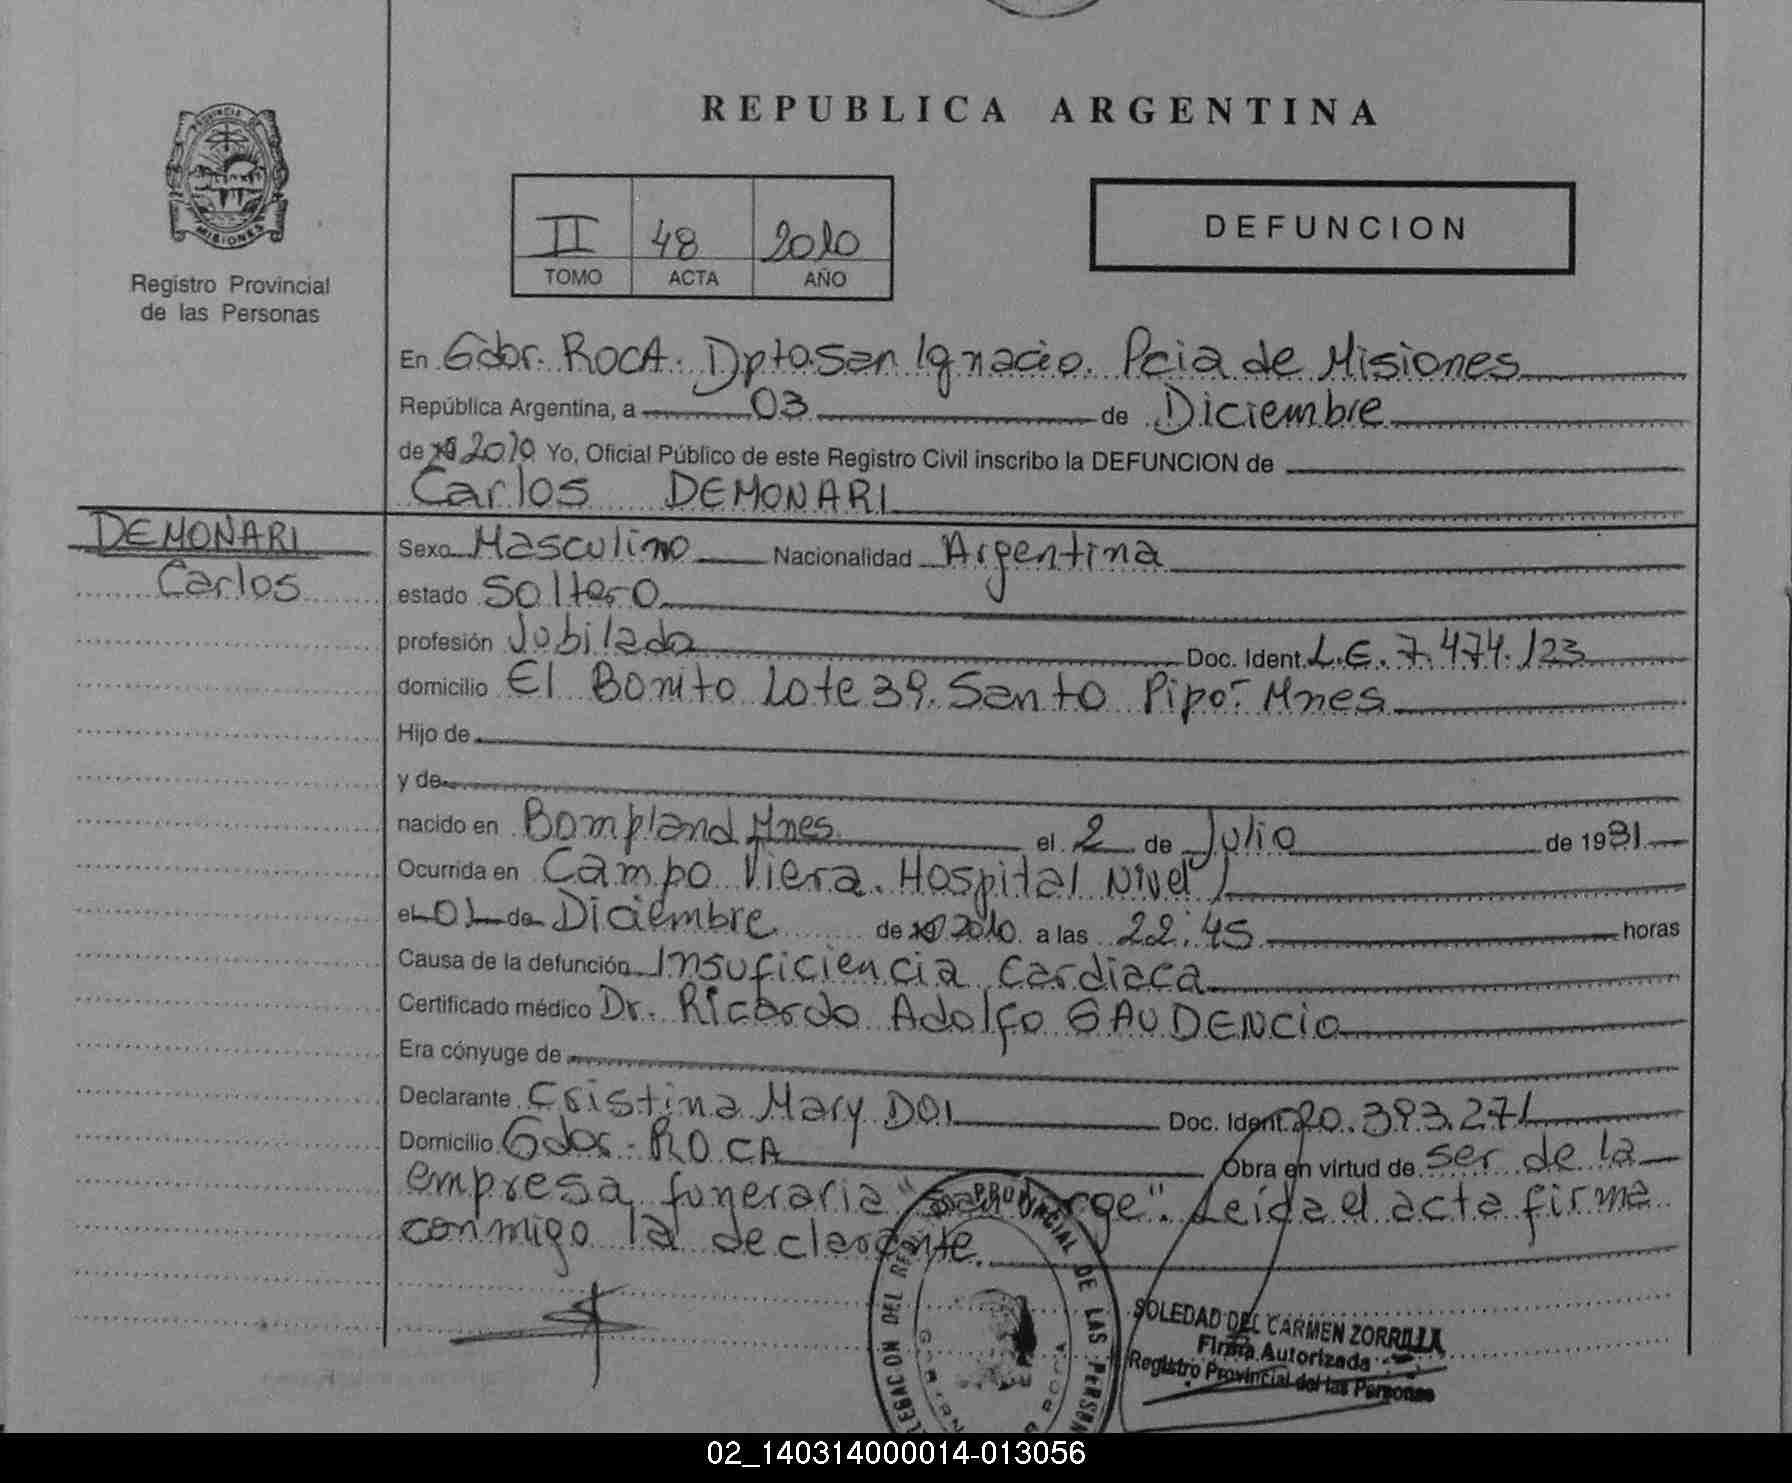 PROVINCIA
MISIONES
Registro Provincial
de las Personas
REPUBLICA ARGENTINA
II 48 2010
TOMO ACTA AÑO
DEFUNCION
En Gdor. ROCA. Dpto San Ignacio. Pcia de Misiones
República Argentina, a 03 de Diciembre
de 2010 Yo, Oficial Público de este Registro Civil inscribo la DEFUNCION de
Carlos DEMONARI
DEMONARI
Carlos
Sexo Masculino Nacionalidad Argentina
estado Soltero
profesión Jubilado Doc. Ident. L.E. 7.474.123
domicilio El Bonito Lote 39. Santo Pipó- Mnes
Hijo de
y de
nacido en Bompland Mnes. el 2 de Julio de 1931
Ocurrida en Campo Viera. Hospital Nivel I
el 01 de Diciembre de 2010 a las 22:45 horas
Causa de la defunción Insuficiencia Cardiaca
Certificado médico Dr. Ricardo Adolfo GAUDENCIO
Era cónyuge de
Declarante Cristina Mary DOI Doc. Ident. 20.393.271
Domicilio Gdor. ROCA Obra en virtud de ser de la
empresa funeraria "San Jorge". Leída el acta firma
conmigo la declarante.
DELEGACION DEL REG. PROVINCIAL DE LAS PERSON
SOLEDAD DEL CARMEN ZORRILLA
Firma Autorizada
Registro Provincial del las Personas
02_140314000014-013056